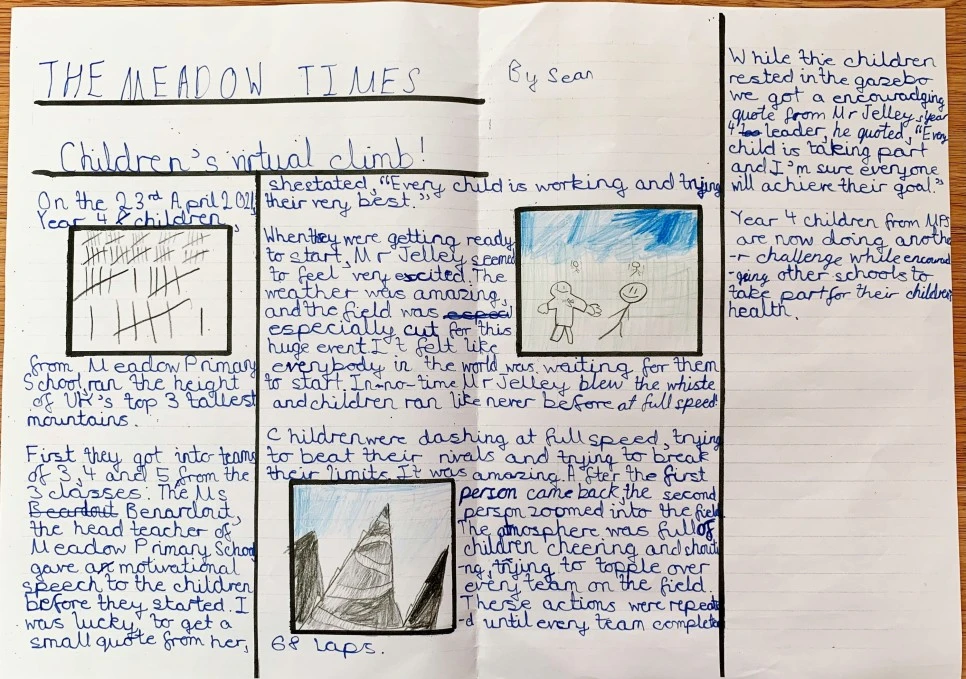 THE MEADOW TIMES
By Sean
Children's virtual climb!
On the 23rd April 2021,
Year 4 children,
from Meadow Primary
School, ran the height
of UK's top 3 tallest
mountains.
First they got into teams
of 3, 4 and 5, from the
3 classes. The Ms
Beardout Benardout,
the head teacher of
Meadow Primary School
gave a motivational
speech to the children
before they started. I
was lucky, to get a
small quote from her,
shestated, "Every child is working and trying
their very best."
When they were getting ready
to start, Mr Jelley seemed
to feel very excited. The
weather was amazing,
and the field was espec
especially cut for this
huge event. It felt like
everybody in the world was waiting for them
to start. In-no-time Mr Jelley blew the whiste
and children ran like never before at full speed!
Children were dashing at full speed, trying
to beat their rivals and trying to break
their limits. It was amazing. After the first
person came back, the second
person zoomed into the field.
The atmosphere was full of
children cheering and shouti
-ng, trying to topple over
every team on the field.
These actions were repeate
-d until every team completed
68 laps.
While the children
rested in the gazebo
we got a encouradging
quote from Mr Jelley, year
4 leader, he quoted, "Every
child is taking part
and I'm sure everyone
will achieve their goal."
Year 4 children from MPS
are now doing anothe
-r challenge while encourad
-ging other schools to
take part for their children
health.